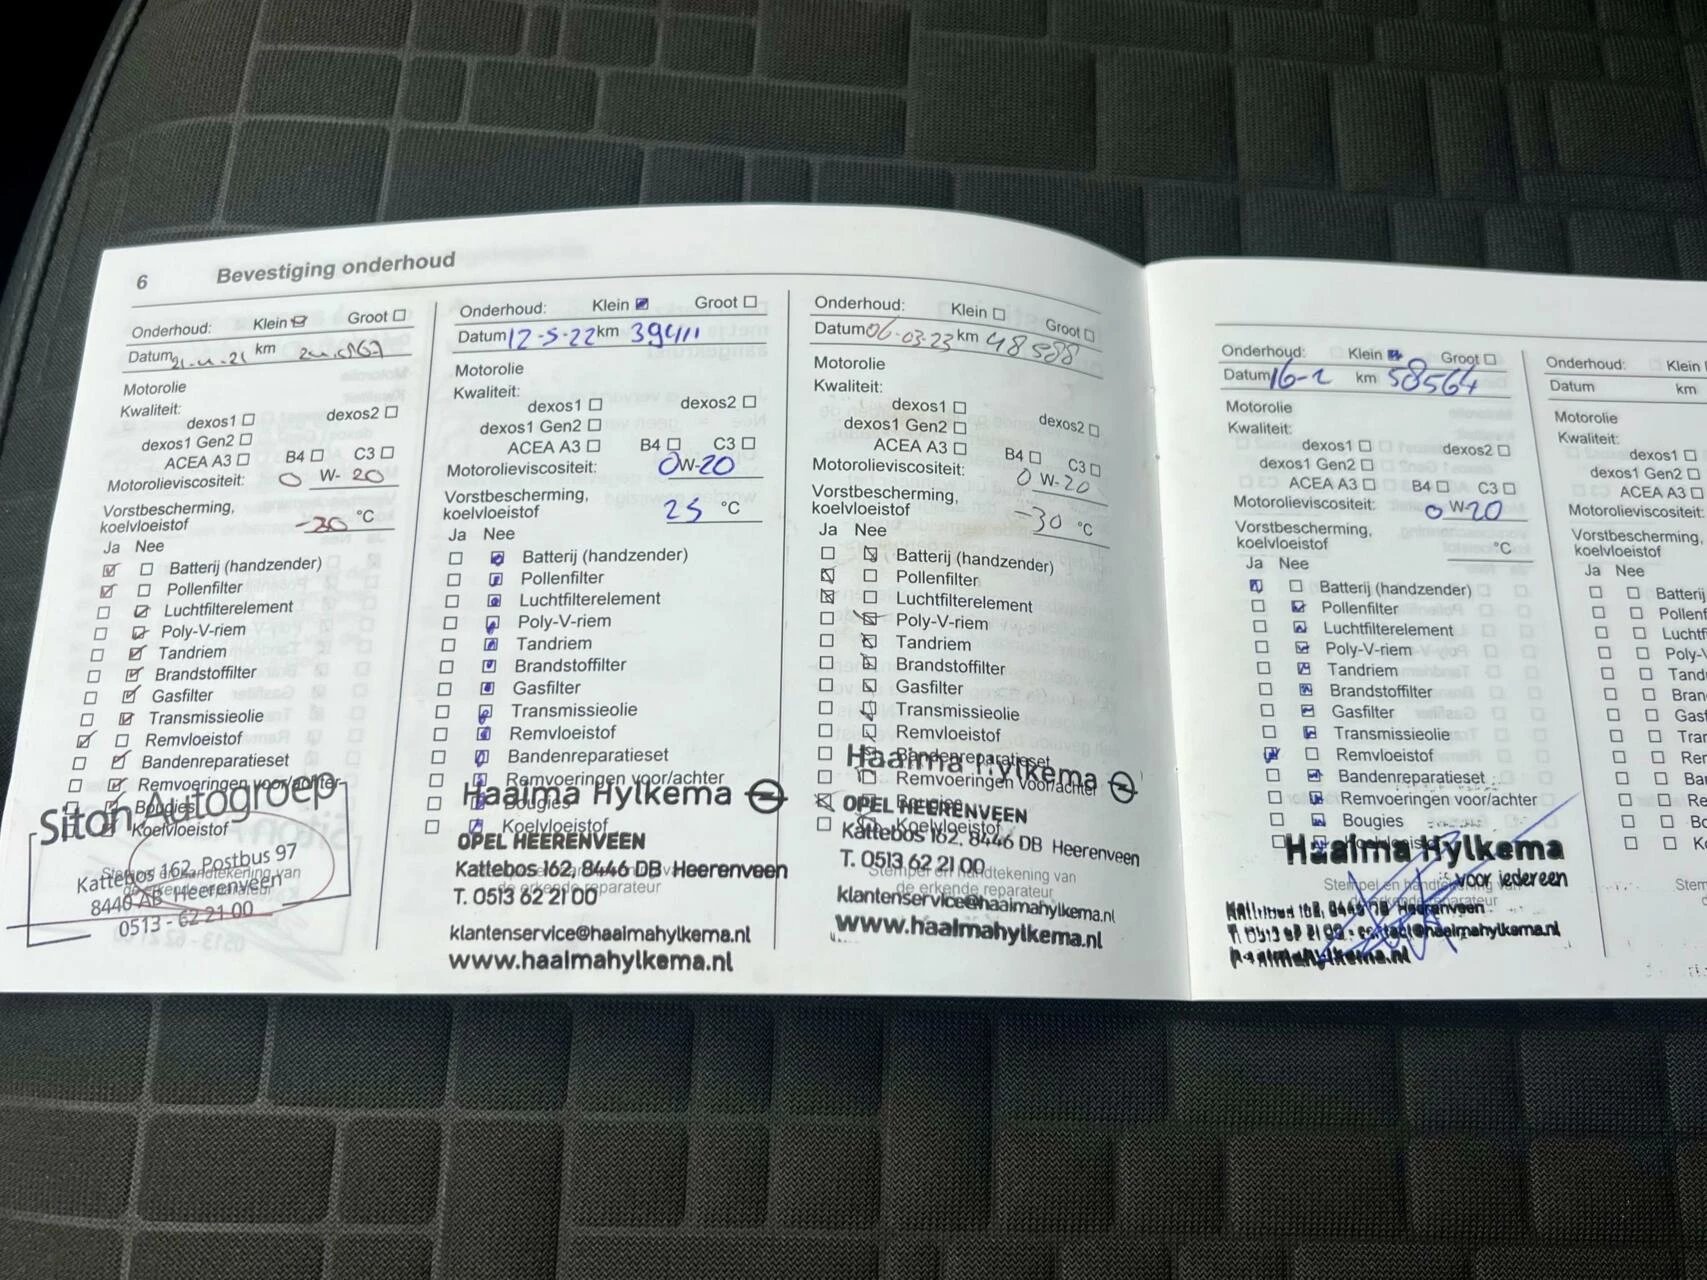 6 Bevestiging onderhoud
Onderhoud: Klein Groot
Datum km
Motorolie
Kwaliteit:
dexos1 dexos2
dexos1 Gen2
ACEA A3 B4 C3
Motorolieviscositeit: 0 W- 20
Vorstbescherming,
koelvloeistof °C
Ja Nee
Batterij (handzender)
Pollenfilter
Luchtfilterelement
Poly-V-riem
Tandriem
Brandstoffilter
Gasfilter
Transmissieolie
Remvloeistof
Bandenreparatieset
Remvoeringen voor/achter
Bougies
Koelvloeistof
Siton Autogroep
Kattebos 162, Postbus 97
8440 AB Heerenveen
0513 - 62 21 00
Onderhoud: Klein Groot
Datum 12-5-22 km 39411
Motorolie
Kwaliteit:
dexos1 dexos2
dexos1 Gen2
ACEA A3 B4 C3
Motorolieviscositeit: 0W-20
Vorstbescherming,
koelvloeistof 25 °C
Ja Nee
Batterij (handzender)
Pollenfilter
Luchtfilterelement
Poly-V-riem
Tandriem
Brandstoffilter
Gasfilter
Transmissieolie
Remvloeistof
Bandenreparatieset
Remvoeringen voor/achter
Bougies
Koelvloeistof
Haaima Hylkema
OPEL HEERENVEEN
Kattebos 162, 8446 DB Heerenveen
de erkende reparateur
T. 0513 62 21 00
klantenservice@haaimahylkema.nl
www.haaimahylkema.nl
Onderhoud: Klein Groot
Datum 06-03-23 km 48588
Motorolie
Kwaliteit:
dexos1 dexos2
dexos1 Gen2
ACEA A3 B4 C3
Motorolieviscositeit: 0 W-20
Vorstbescherming,
koelvloeistof -30 °C
Ja Nee
Batterij (handzender)
Pollenfilter
Luchtfilterelement
Poly-V-riem
Tandriem
Brandstoffilter
Gasfilter
Transmissieolie
Remvloeistof
Bandenreparatieset
Remvoeringen voor/achter
Bougies
Koelvloeistof
Haaima Hylkema
OPEL HEERENVEEN
Kattebos 162, 8446 DB Heerenveen
T. 0513 62 21 00
Stempel en handtekening van
de erkende reparateur
klantenservice@haaimahylkema.nl
www.haaimahylkema.nl
Onderhoud: Klein Groot
Datum 16-2 km 58564
Motorolie
Kwaliteit:
dexos1 dexos2
dexos1 Gen2
ACEA A3 B4 C3
Motorolieviscositeit: 0 W-20
Vorstbescherming,
koelvloeistof °C
Ja Nee
Batterij (handzender)
Pollenfilter
Luchtfilterelement
Poly-V-riem
Tandriem
Brandstoffilter
Gasfilter
Transmissieolie
Remvloeistof
Bandenreparatieset
Remvoeringen voor/achter
Bougies
Haaima Hylkema
voor iedereen
Heerenveen
contact@haaimahylkema.nl
haaimahylkema.nl
Onderhoud: Klein
Datum km
Motorolie
Kwaliteit:
dexos1
dexos1 Gen2
ACEA A3
Motorolieviscositeit:
Vorstbescherming,
koelvloeistof
Ja Nee